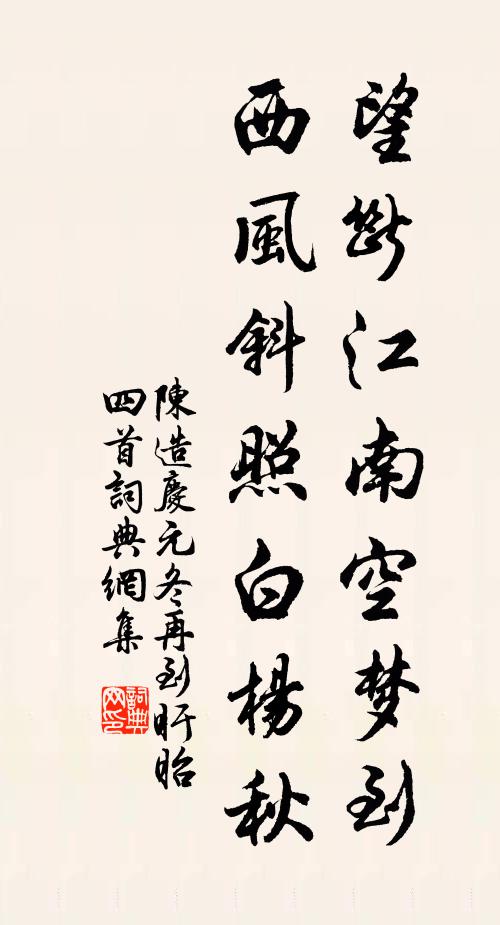 望斷江南空梦到
西風斜照白楊秋
陳造慶元冬再到盱眙
四首詞典網集
詞典
网印